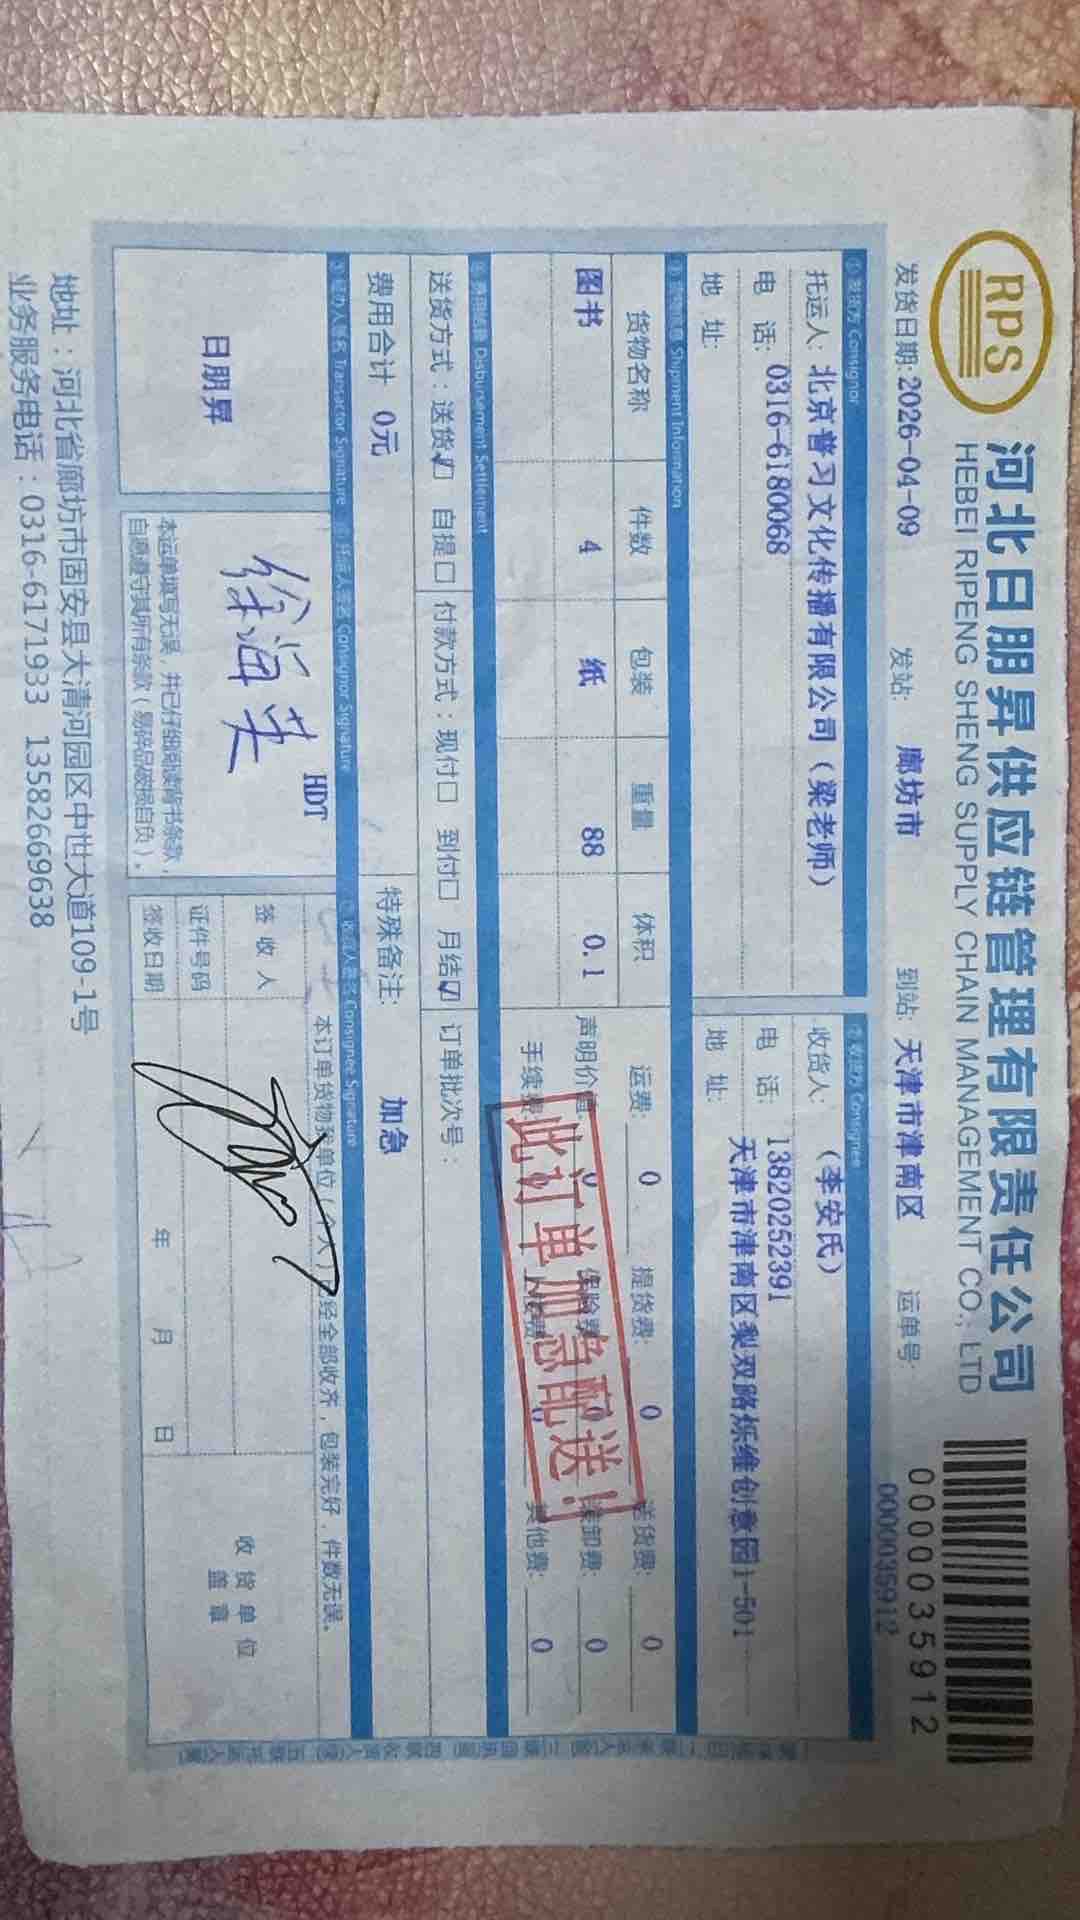 RPS
河北日朋昇供应链管理有限责任公司
HEBEI RIPENG SHENG SUPPLY CHAIN MANAGEMENT CO., LTD
0000035912
发货日期:2026-04-09 发站: 廊坊市 到站: 天津市津南区 运单号: 0000035912
①发货方 Consignor
托运人: 北京普习文化传播有限公司（梁老师）
电 话: 0316-6180068
地 址:
②收货方 Consignee
收货人: （李安氏）
电 话: 13820252391
地 址: 天津市津南区梨双路烁维创意园1-501
③货物信息 Shipment Information
货物名称 件数 包装 重量 体积
图书 4 纸 88 0.1
运费: 0 提货费: 0 送货费: 0
声明价值: 0 保险费: 0 装卸费: 0
手续费: 0 上楼费: 0 其他费: 0
此订单加急配送！
④费用结算 Disbursement Settlement
送货方式：送货☑ 自提□ 付款方式：现付□ 到付□ 月结☑ 订单批次号：
费用合计 0元 特殊备注: 加急
⑤经办人签名 Transactor Signature
日朋昇
⑥托运人签名 Consignor Signature
HDT
徐海英
本运单填写无误，并已仔细阅读背书条款，
自愿遵守其所有条款（易碎品破损自负）。
⑦收货人签名 Consignee Signature
本订单货物我单位（个人）已经全部收齐，包装完好，件数无误。
签收人
证件号码
签收日期 年 月 日
收货单位
盖章
地址：河北省廊坊市固安县大清河园区中世大道109-1号
业务服务电话：0316-6171933 13582669638